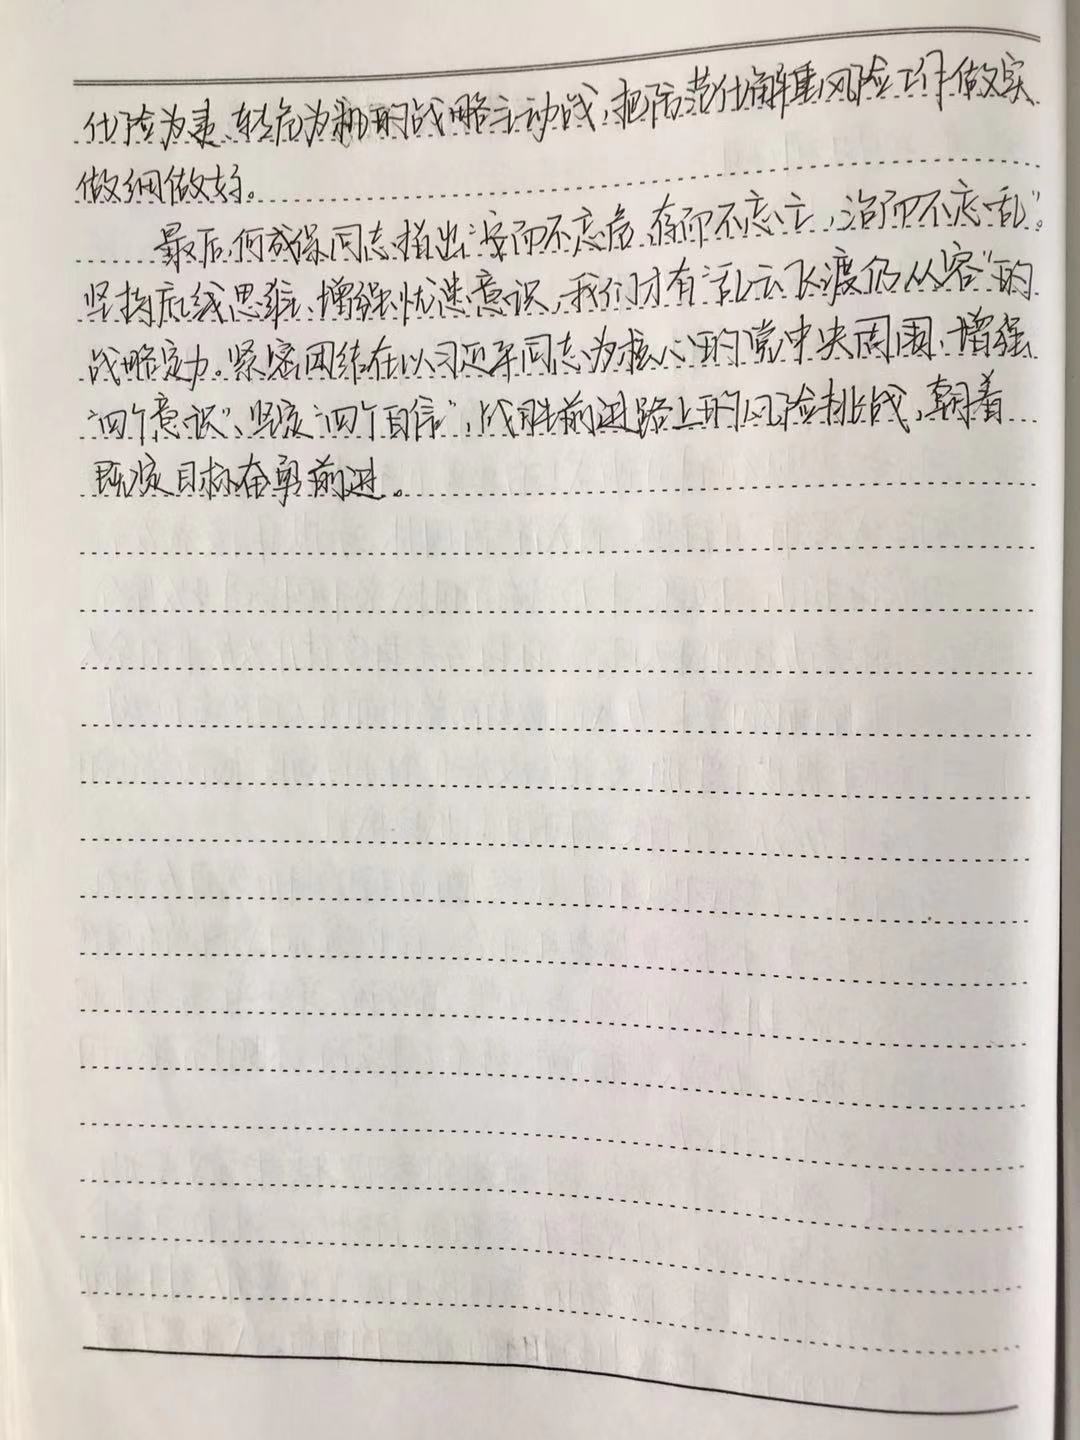 化险为夷、转危为机的战略主动战，把防范化解重风险工作做实
做细做好。
最后，何成保同志指出“安而不忘危，存而不忘亡，治而不忘乱”。
坚持底线思维、增强忧患意识，我们才有“乱云飞渡仍从容”的
战略定力。紧密团结在以习近平同志为核心的党中央周围，增强
“四个意识”、坚定“四个自信”，战胜前进路上的风险挑战，朝着
既定目标奋勇前进。